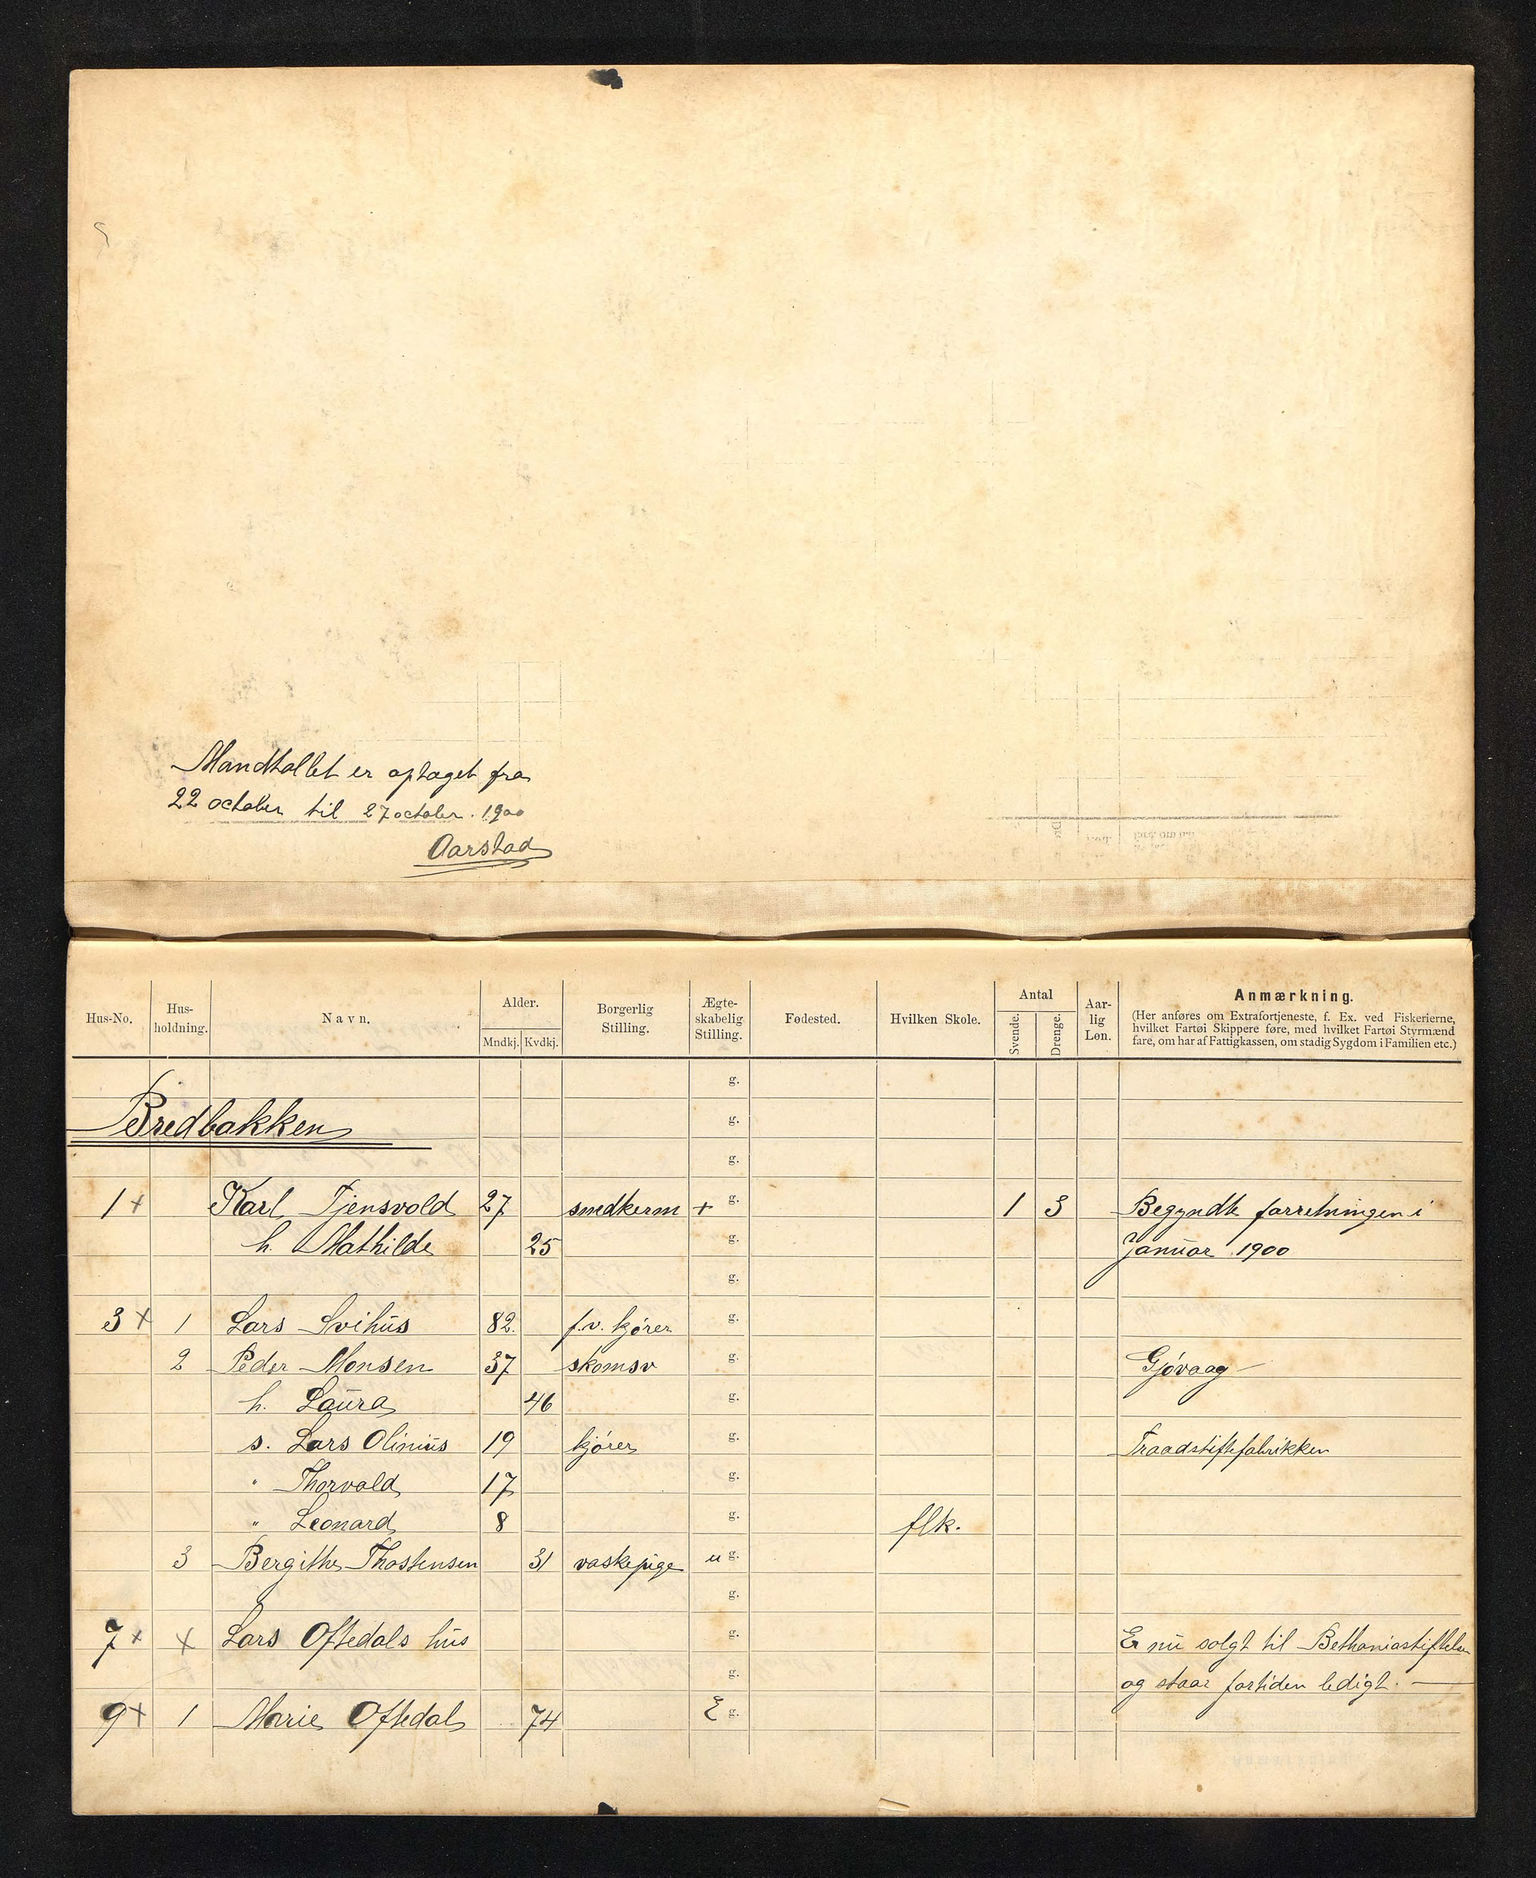 Mandtallet er optaget fra
22 october til 27 october. 1900
Aarstad
Hus-No. Hus-holdning. Navn. Alder. Mndkj. Kvdkj. Borgerlig Stilling. Ægte-skabelig Stilling. Fødested. Hvilken Skole. Antal Svende. Drenge. Aar-lig Løn. Anmærkning.
(Her anføres om Extrafortjeneste, f. Ex. ved Fiskerierne,
hvilket Fartøi Skippere føre, med hvilket Fartøi Styrmænd
fare, om har af Fattigkassen, om stadig Sygdom i Familien etc.)
g.
Bredbakken g.
g.
1 + Karl Tjensvold 27 smedkerm + g. 1 3 Begyndte forretningen i
h. Mathilde 25 g. Januar 1900
g.
3 + 1 Lars Svihus 82. f.v. kjører g.
2 Peder Monsen 37 skomsv g. Gjøvaag
h. Laura 46 g.
s. Lars Olinius 19 kjører g. Traadstiftefabrikken
" Thorvald 17 g.
" Leonard 8 g. flk.
3 Bergithe Thostensen 31 vaskepige u g.
g.
7 + + Lars Oftedals hus g. Er nu solgt til Bethaniastiftelsen
g. og staar fortiden ledigt.
9 + 1 Marie Oftedal 74 E g.